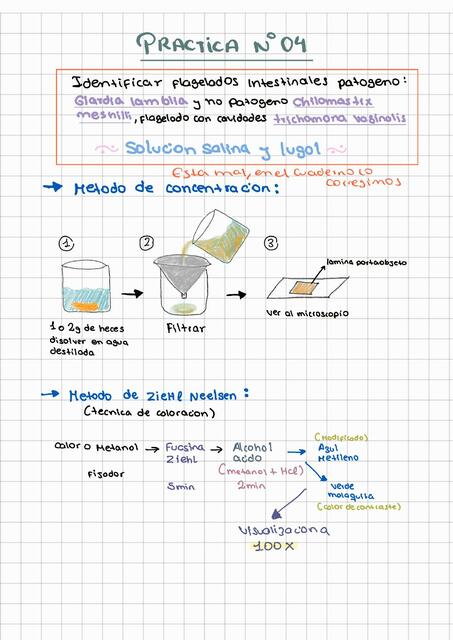 PRACTICA N° 04
Identificar flagelados intestinales patogeno:
Giardia lamblia y no patogeno Chilomastix
mesnilli, flagelado con cavidades trichomona vaginalis
Solucion salina y lugol
Esta mal, en el cuaderno lo
corregimos
→ Metodo de concentracion:
1
2
3
lamina portaobjeto
1 o 2g de heces
disolver en agua
destilada
Filtrar
ver al microscopio
→ Metodo de Ziehl Neelsen:
(tecnica de coloracion)
Calor o Metanol → Fucsina → Alcohol → (Modificado)
Ziehl acido Azul
Metileno
Fijador (metanol + Hcl)
5min 2min verde
malaquita
(color de contraste)
Visualizacion a
100 X